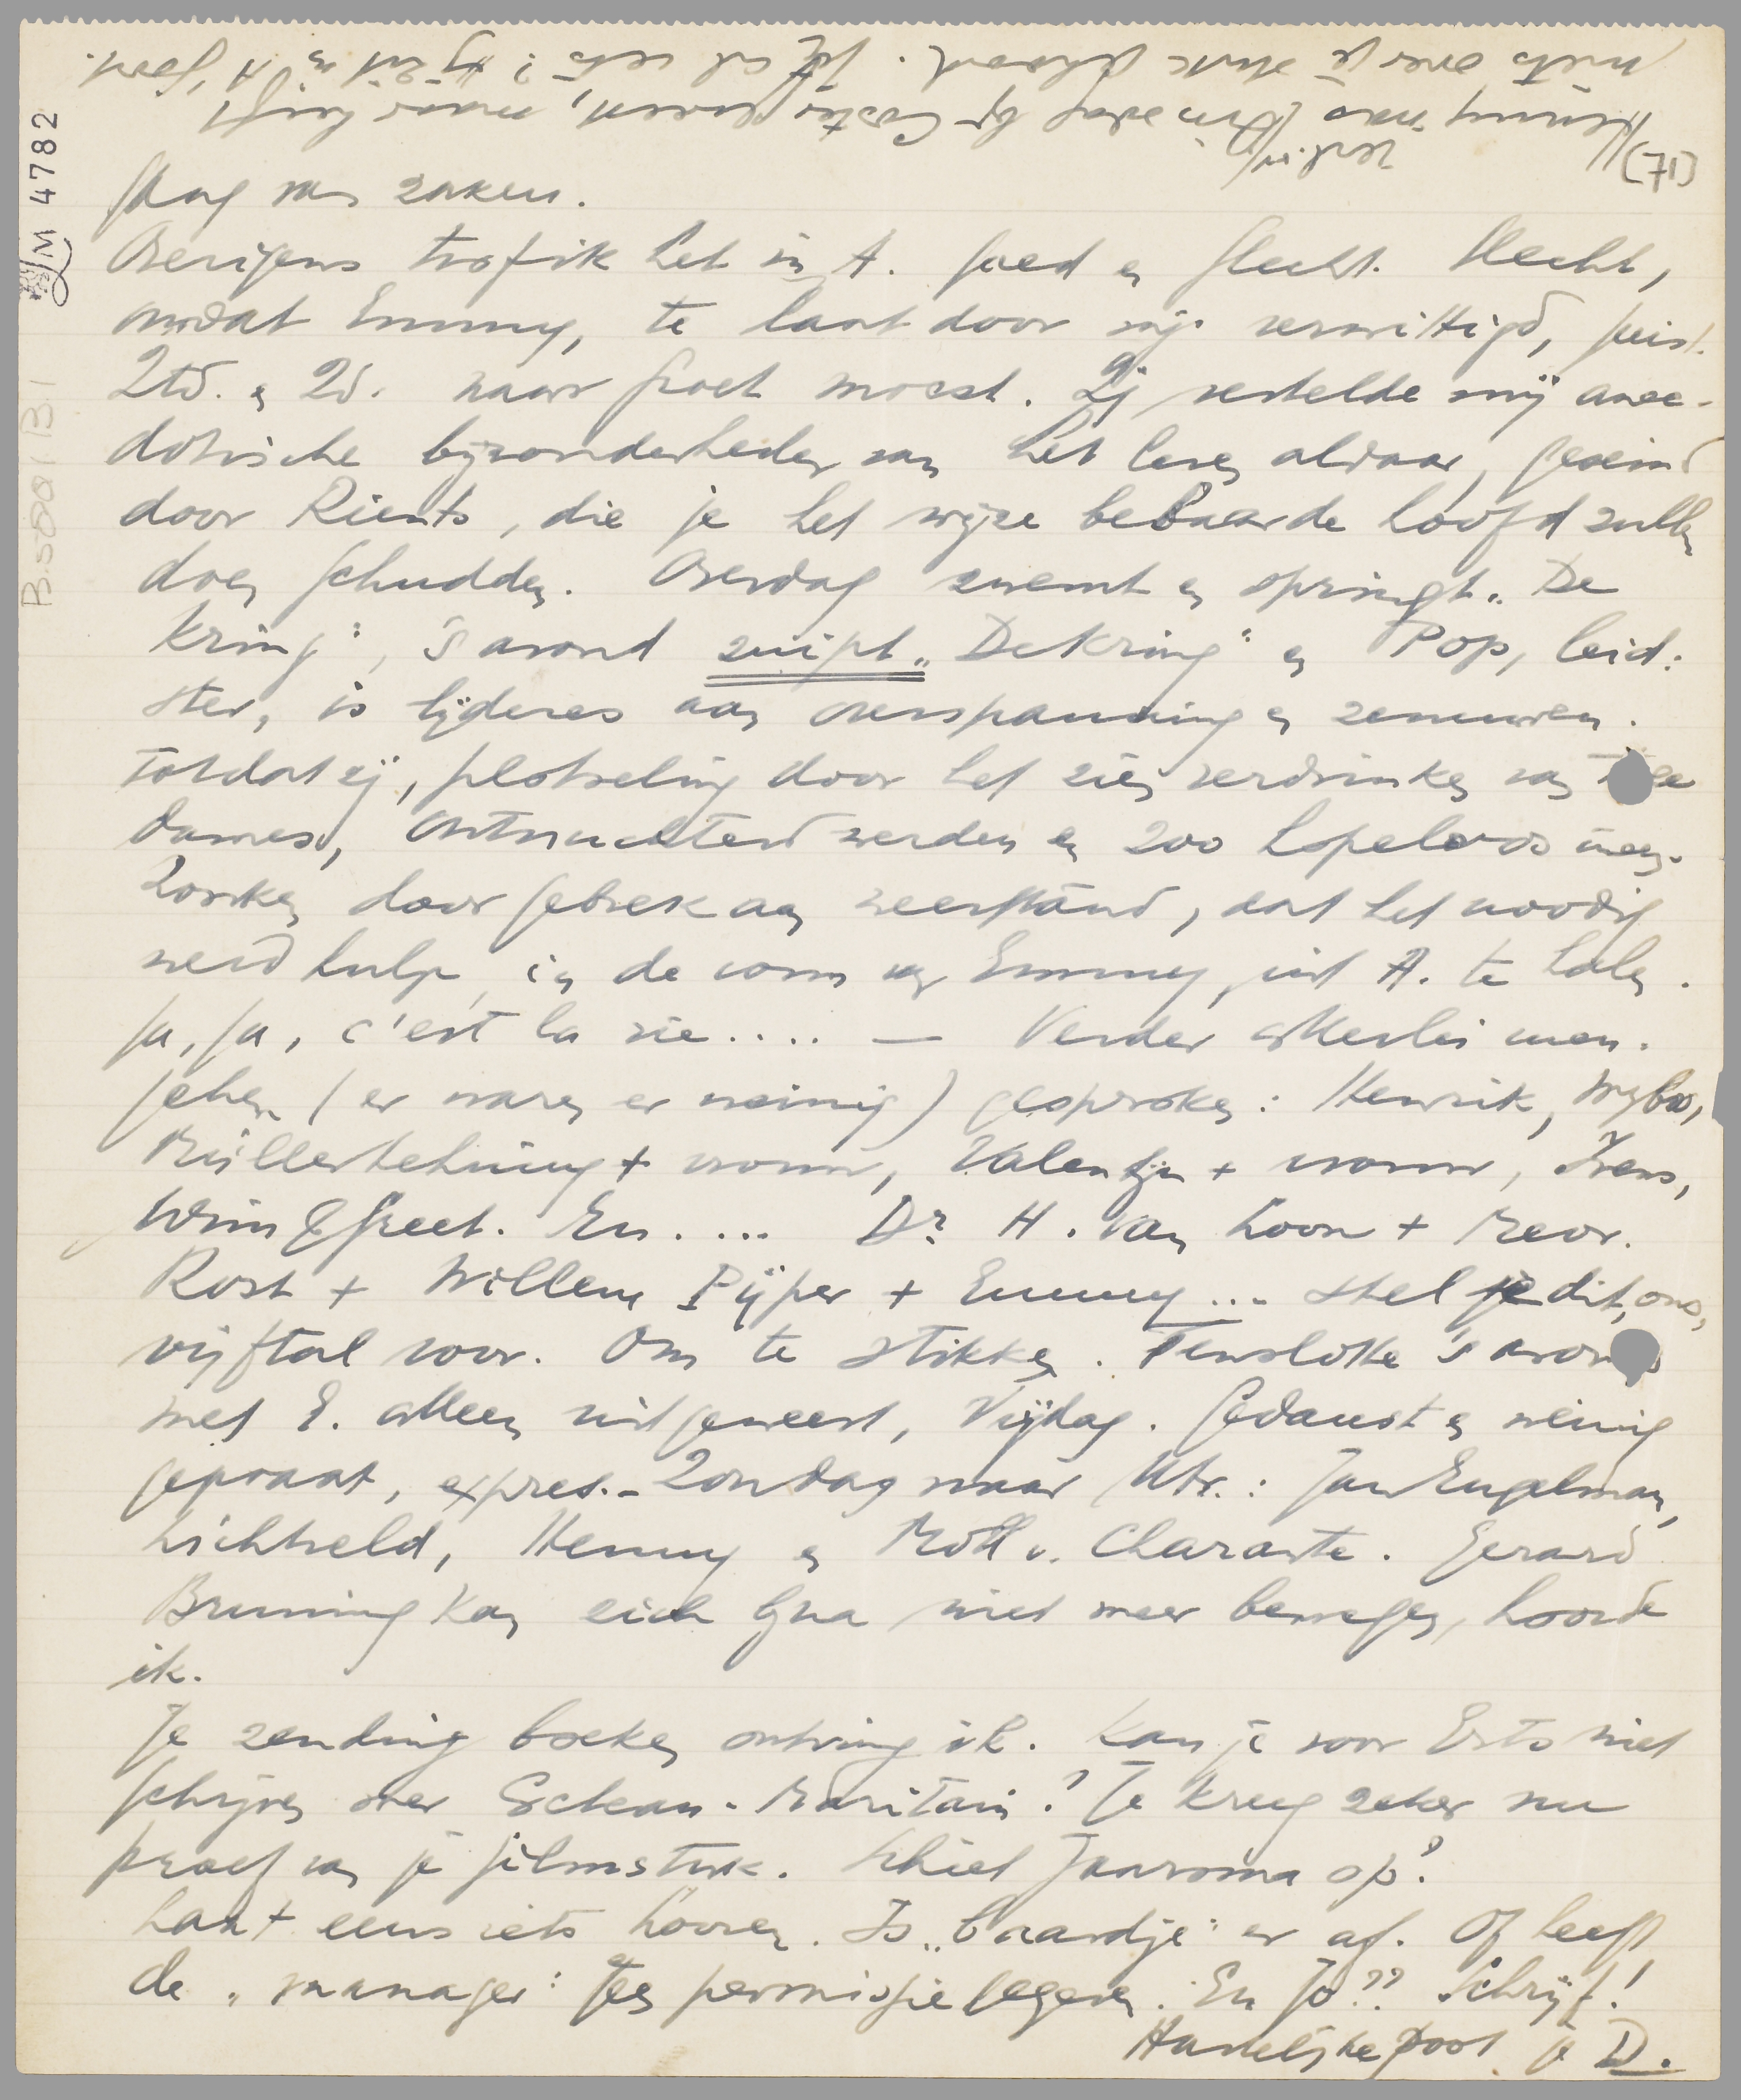 (71)
Henny was Dinsdag bij Coster
niets over je stuk gehoord. Jij al iets? Hij zit in A, geert.
M 4782
B.5501 B1
gang van zaken.
Overigens trof ik het in A. goed en slecht. Slecht,
omdat Emmy, te laat door mij verwittigd, juist
Ztd. en Zd. naar Groet moest. Zij vertelde mij anec-
dotische bijzonderheden van het leven aldaar, geseind
door Rients, die je het wijze bebaarde hoofd zullen
doen schudden. Overdag zwemt en springt „De
Kring", 's avond zuipt „De Kring" en Pop, leid:
ster, is lijderes aan overspanning en zenuwen.
totdat zij, plotseling door het zien verdrinken van twee
dames, ontnuchterd werden en zoo hopeloos ineen-
zonken door gebrek aan weerstand, dat het noodig
werd hulp, in de vorm van Emmy, uit A. te halen.
Ja, ja, c'est la vie.... — Verder allerlei men-
schen (er waren er weinig) gesproken: Henrik, Wybo,
Müller Lehning + vrouw, Valentijn + vrouw, Ivens,
Wim en Greet. En.... Dr. H. van Loon + Mevr.
Rost + Willem Pijper + Emmy... stel je dit, ons,
vijftal voor. Om te stikken. Tenslotte 's avonds
met E. alleen uitgeweest, Vrijdag. Gedanst en weinig
gepraat, expres. – Zondag naar Utr.: Jan Engelman,
Lichtveld, Henny en Moll v. Charante. Gerard
Bruning kan zich bijna niet meer bewegen, hoorde
ik.
Je zending boeken ontving ik. Kan je voor Erts niet
schrijven over Cocteau-Maritain? Je kreeg zeker nu
proef van je filmstuk. Schiet Jaarsma op?
Laat eens iets hooren. Is „baardje" er af. Of heeft
de „manager" geen permissie gegeven. En Jo?? Schrijf!
Hartelijke poot je D.